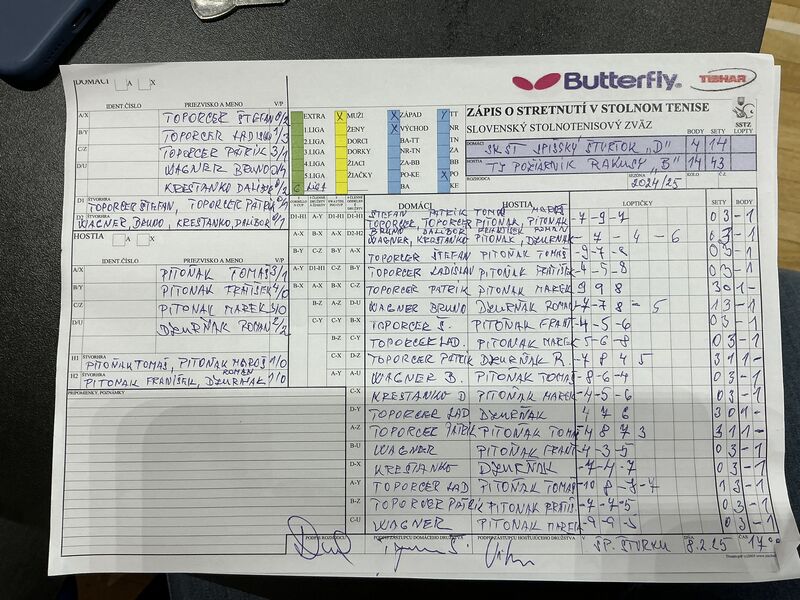 DOMÁCI A X
IDENT.ČÍSLO PRIEZVISKO A MENO V/P
A/X TOPORCER ŠTEFAN 0/2
B/Y TOPORCER LADISLAV 1/3
C/Z TOPORCER PATRIK 3/1
D/U WAGNER BRUNO
KREŠTANKO DALIBOR 0/2
D1 ŠTVORHRA TOPORCER ŠTEFAN, TOPORCER PATRIK 0/1
D2 WAGNER, BRUNO, KREŠTANKO, DALIBOR 0/1
HOSTIA A X
IDENT.ČÍSLO PRIEZVISKO A MENO V/P
A/X PITOŇAK TOMÁŠ 3/1
B/Y PITOŇAK FRATIŠEK 4/0
C/Z PITOŇAK MAREK
D/U DŽURŇÁK ROMAN 2/2
H1 ŠTVORHRA PITOŇAK TOMÁŠ, PITOŇAK MAROŠ 1/0
ROMAN
H2 PITOŇAK FRANIŠEK, DŽURŇAK 1/0
PRIPOMIENKY, POZNÁMKY
EXTRA
1.LIGA
2.LIGA
3.LIGA
4.LIGA
5.LIGA
6 LIGA
X MUŽI
ŽENY
DORCI
DORKY
ŽIACI
ŽIAČKY
X ZÁPAD
X VÝCHOD
BA-TT
NR-TN
ZA-BB
PO-KE
BA
TT
NR
TN
ZA
BB
X PO
KE
Butterfly
TIBHAR
ZÁPIS O STRETNUTÍ V STOLNOM TENISE
SLOVENSKÝ STOLNOTENISOVÝ ZVÄZ
SSTZ
BODY SETY LOPTY
DOMÁCI SKŠT SPIŠSKÝ ŠTVRTOK „D" 4 14
HOSTIA TJ POŽIARNIK RAKÚSY „B" 14 43
ROZHODCA SEZÓNA 2024/25 KOLO Č.
DOMÁCI HOSTIA LOPTIČKY SETY BODY
ŠTEFAN PATRIK TOMÁŠ MAROŠ
TOPORCER, TOPORCER PITOŇAK, PITOŇAK -7 -9 -7 03 -1
BRUNO DALIBOR FRANIŠEK ROMAN
WAGNER, KREŠTANKO PITOŇAK, DŽURŇAK - 7 - 4 - 6 03 -1
TOPORCER ŠTEFAN PITOŇAK TOMÁŠ -9 -7 -8 03 -1
TOPORCER LADISLAV PITOŇAK FRATIŠEK -4 -5 -8 03 -1
TOPORCER PATRIK PITOŇAK MAREK 9 9 8 30 1-
WAGNER BRUNO DŽURŇAK ROMAN -7 -7 8 -5 13 -1
TOPORCER Š. PITOŇAK FRANT -4 -5 -6 03 -1
TOPORCER LAD. PITOŇAK MAREK -5 -6 -8 03 -1
TOPORCER PATRIK DŽURŇAK R. -7 8 4 5 31 1-
WAGNER B. PITOŇAK TOMÁŠ -8 -6 -4 03 -1
C-X KREŠTANKO D PITOŇAK MAREK -4 -5 -6 03 -1
D-Y TOPORCER LAD DŽURŇAK 4 7 6 30 1-
A-Z TOPORCER PATRIK PITOŇAK TOMÁŠ -4 8 7 3 31 1-
B-U WAGNER PITOŇAK FRANT -4 -3 -5 03 -1
D-X KREŠTANKO DŽURŇAK -7 -4 -7 03 -1
A-Y TOPORCER LAD PITOŇAK TOMÁŠ -10 8 -7 -7 13 -1
B-Z TOPORCER PATRIK PITOŇAK FRATIŠ -7 -7 -5 03 -1
C-U WAGNER PITOŇAK MAREK -9 -9 -5 03 -1
PODPIS ROZHODCU PODPIS ZÁSTUPCU DOMÁCEHO DRUŽSTVA PODPIS ZÁSTUPCU HOSŤUJÚCEHO DRUŽSTVA V SP. ŠTVRTKU DŇA 8.2.25 ČAS 17°°